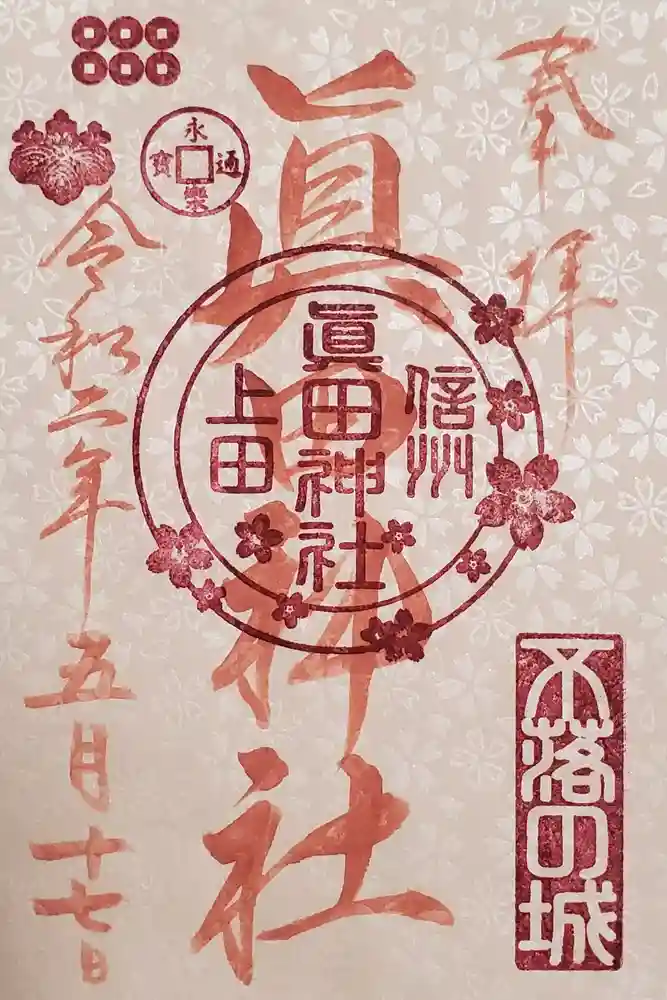 奉拝
眞田神社
信州
眞田神社
上田
不落の城
永樂通寳
令和二年五月十七日